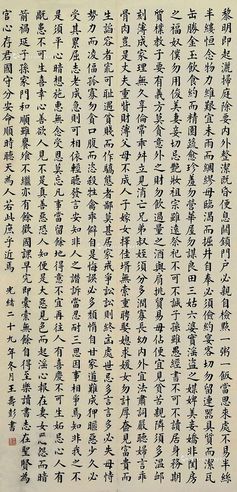 黎明即起灑掃庭除要內外整潔既昏便息關鎖門戶必親自檢點一粥一飯當思來處不易半絲
半縷恆念物力維艱宜未雨而綢繆毋臨渴而掘井自奉必須儉約宴客切勿留連器具質而潔瓦
缶勝金玉飲食約而精園蔬愈珍羞勿營華屋勿謀良田三姑六婆實淫盜之媒婢美妾嬌非閨房
之福奴僕勿用俊美妻妾切忌艷妝祖宗雖遠祭祀不可不誠子孫雖愚經書不可不讀居身務期
質樸教子要有義方莫貪意外之財勿飲過量之酒與肩挑貿易毋佔便宜見貧苦親鄰須多溫卹
刻薄成家理無久享倫常乖舛立見消亡兄弟叔姪須分多潤寡長幼內外宜法肅詞嚴聽婦言乖
骨肉豈是丈夫重貲財薄父母不成人子嫁女擇佳壻無索重聘娶媳求淑女勿計厚奩見富貴而
生諂容者最可恥遇貧賤而作驕態者賤莫甚居家戒爭訟訟則終凶處世戒多言言多必失毋恃
勢力而凌逼孤寡勿貪口腹而恣殺牲禽乖僻自是悔誤必多頹惰自甘家道難成狎暱惡少久必
受其累屈志老成急則可相依輕聽發言安知非人之譖愬當忍耐三思因事相爭焉知非我之不
是須平心暗想施惠無念受恩莫忘凡事當留餘地得意不宜再往人有喜慶不可生妒忌心人有
禍患不可生喜幸心善欲人見不是真善惡恐人知便是大惡見色而起淫心報在妻女匿怨而用暗
箭禍延子孫家門和順雖饔飧不繼亦有餘歡國課早完即囊橐無餘自得至樂讀書志在聖賢為
官心存君國守分安命順時聽天為人若此庶乎近焉 光緒二十九年冬月王壽彭書